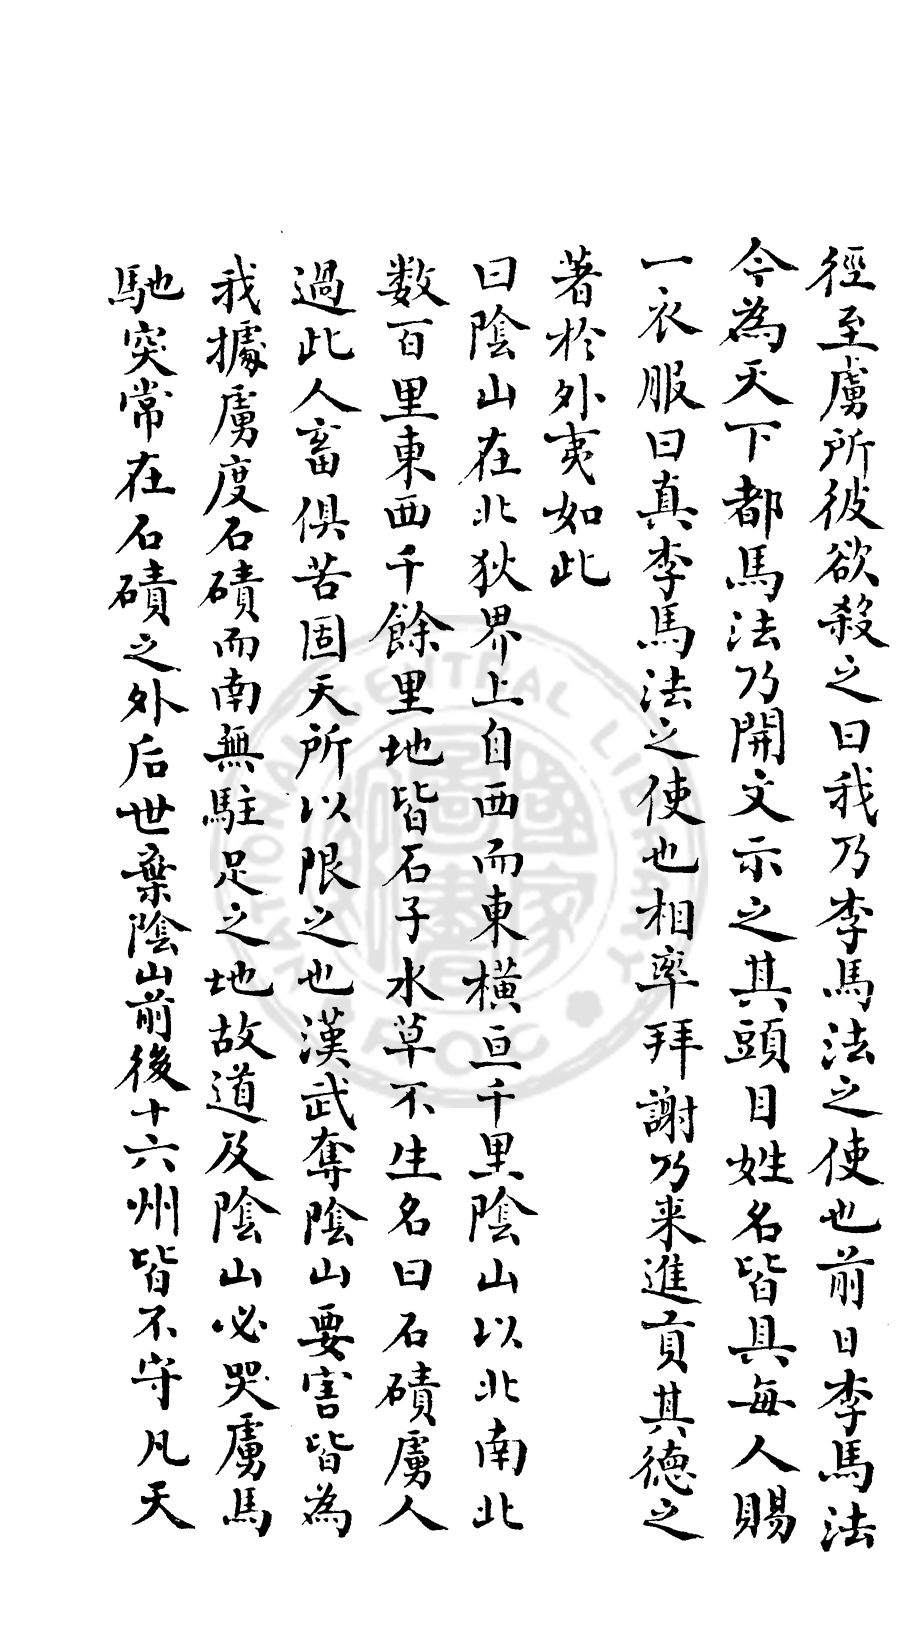 徑至虜所彼欲殺之曰我乃李馬法之使也前日李馬法
今為天下都馬法乃開文示之其頭目姓名皆具每人賜
一衣服曰真李馬法之使也相率拜謝乃来進貢其德之
著扵外夷如此
曰陰山在北狄界上自西而東橫亘千里陰山以北南北
数百里東西千餘里地皆石子水草不生名曰石磧虜人
過此人畜俱苦固天所以限之也漢武奪陰山要害皆為
我據虜度石磧而南無駐足之地故道及陰山必哭虜馬
馳突常在石磧之外后世棄陰山前後十六州皆不守凡天
NATIONAL CENTRAL LIBRARY
ROC
國家圖書館